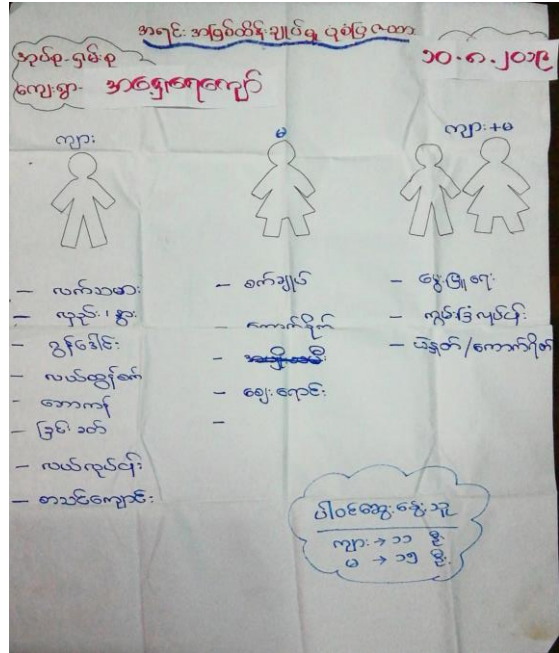 အရင်းအမြစ်ထိန်းချုပ်မှု ပုံစံပြဇယား
အုပ်စု-ရှမ်းစု
ကျေးရွာ- အရှေ့ရေကျော်
၁၀.၈.၂၀၁၉
ကျား
မ
ကျား+မ
- လက်သမား
- လှည်း၊ နွား
- ထွန်ဒေါင်း
- လယ်ထွန်စက်
-
- ခြင်းခတ်
- လယ်လုပ်ငန်း
- စာသင်ကျောင်း
- စက်ချုပ်
- ကောက်စိုက်
-
- ဈေးရောင်း
-
- မွေးမြူရေး
- ကွမ်းခြံလုပ်ငန်း
- ပဲနှုတ်/ကောက်ရိတ်
ပါဝင်ဆွေးနွေးသူ
ကျား → ၁၁ ဦး
မ → ၁၅ ဦး